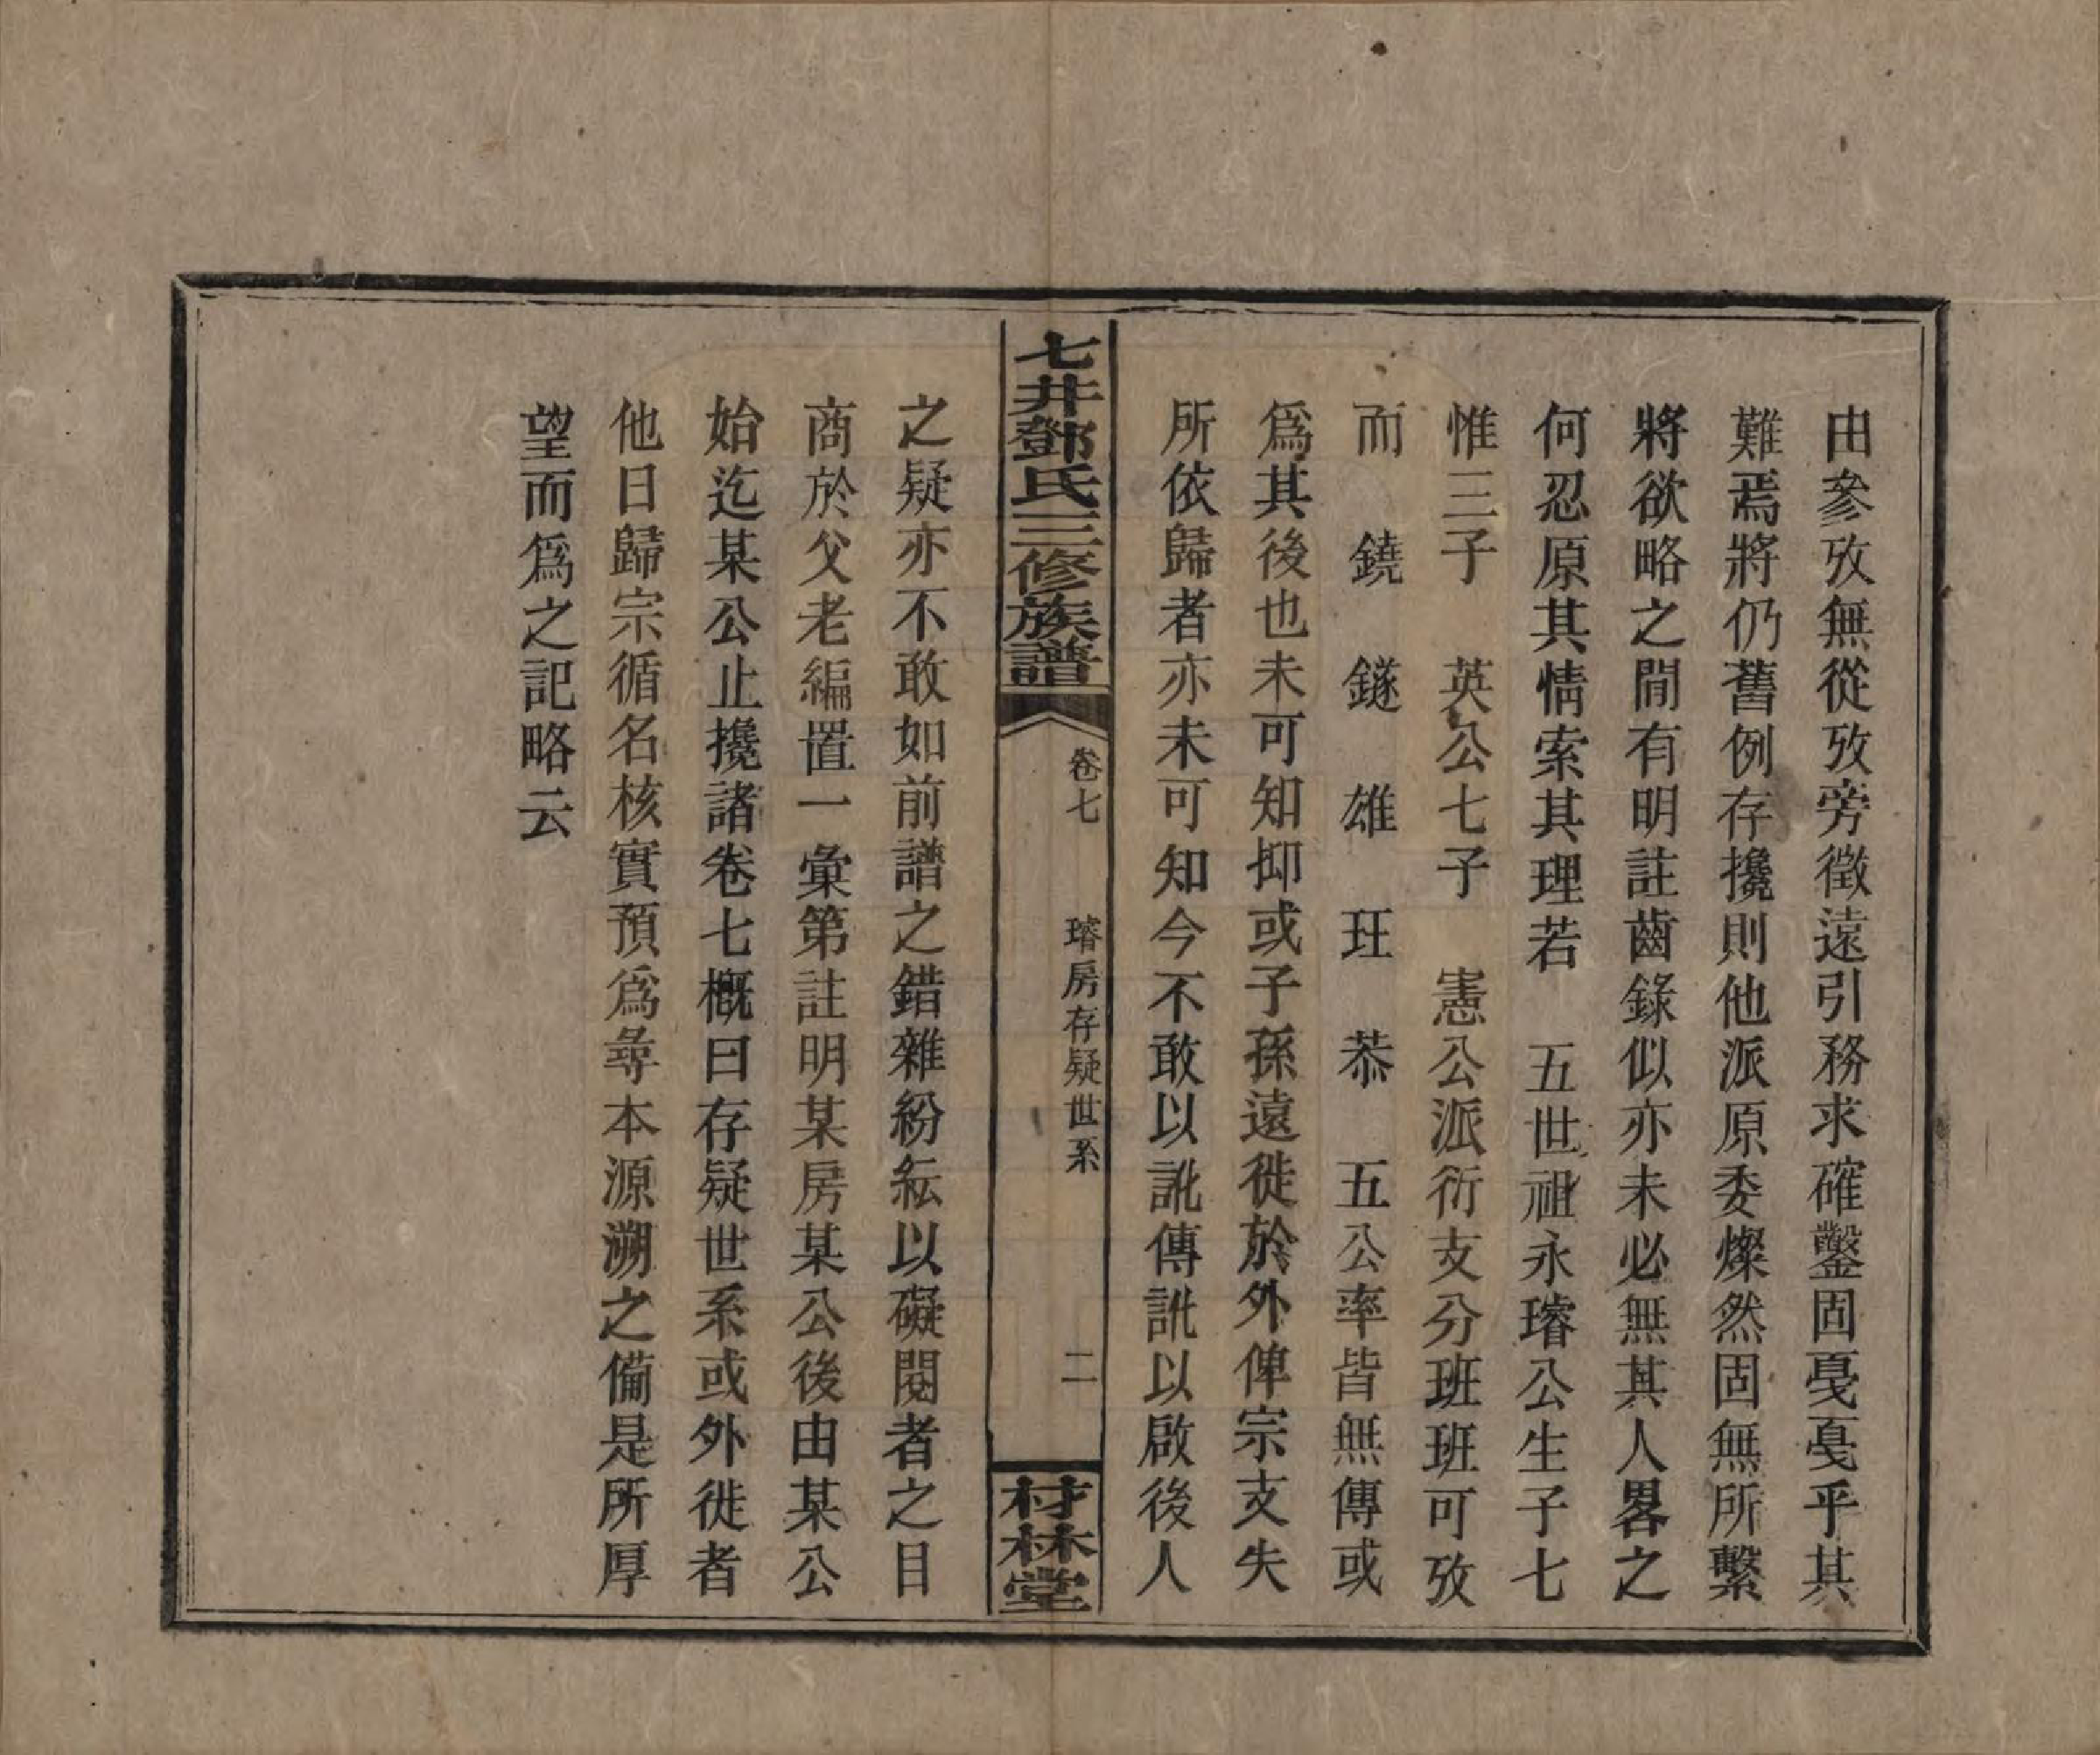 由參攷無從攷旁徵遠引務求確鑿固戞戞乎其
難焉將仍舊例存攙則他派原委燦然固無所繫
將欲略之閒有明註齒錄似亦未必無其人畧之
何忍原其情索其理若　五世祖永璿公生子七
惟三子　英公七子　憲公派衍支分班班可攷
而　鐃　鐩　雄　玨　恭　五公率皆無傳或
爲其後也未可知抑或子孫遠徙於外俾宗支失
所依歸者亦未可知今不敢以訛傳訛以啟後人
七井鄧氏三修族譜
卷七
璿房存疑世系
二
材林堂
之疑亦不敢如前譜之錯雜紛紜以礙閱者之目
商於父老編置一彙第註明某房某公後由某公
始迄某公止攙諸卷七概曰存疑世系或外徙者
他日歸宗循名核實預爲尋本源溯之備是所厚
望而爲之記略云